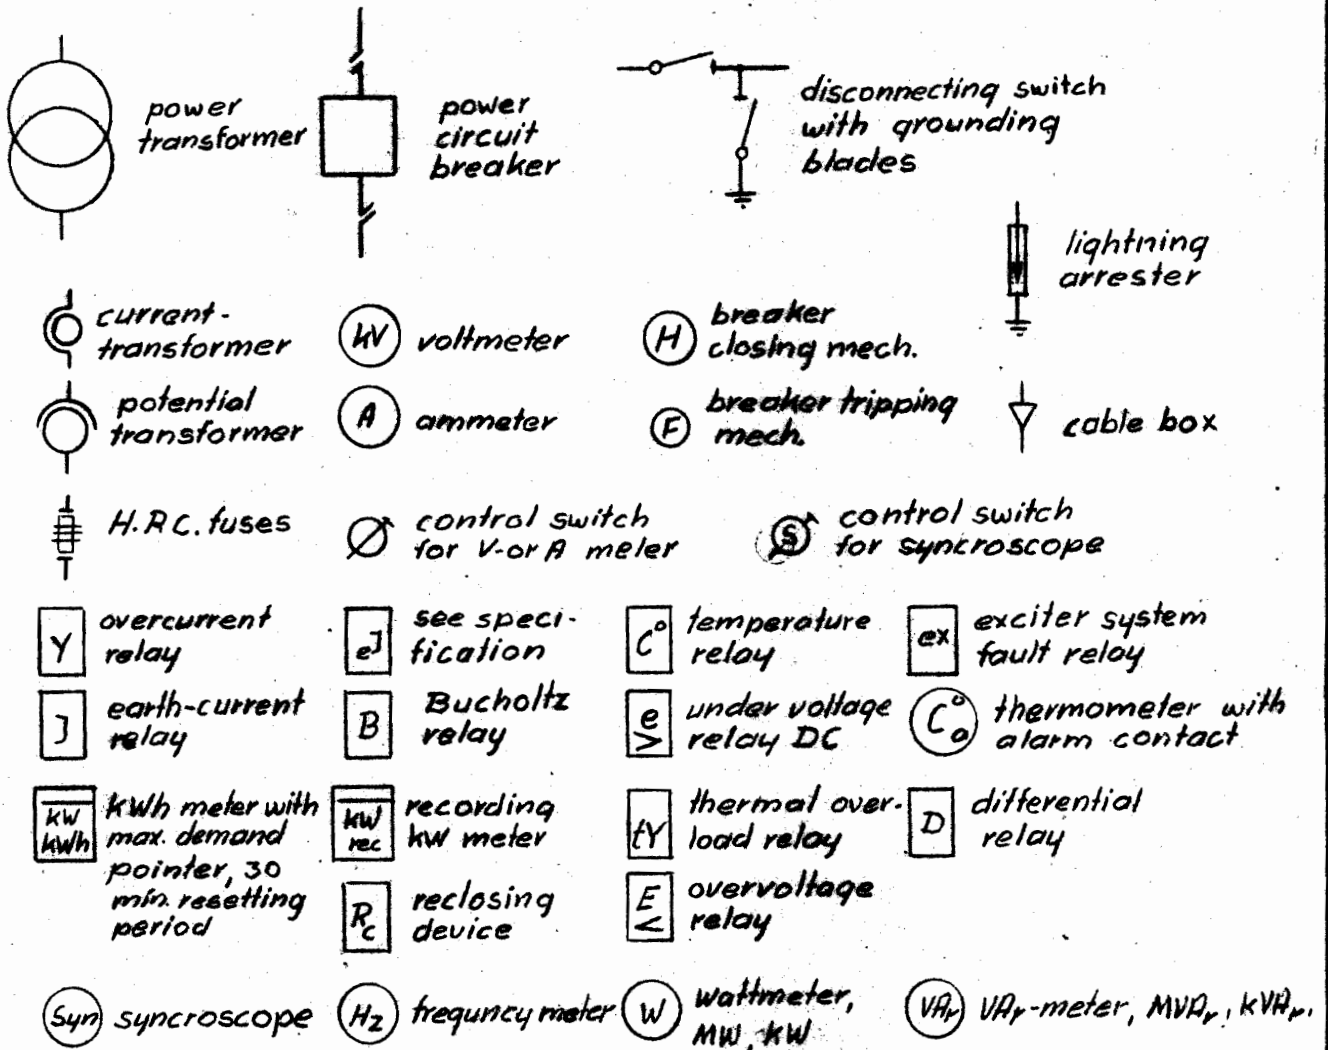 power
transformer
power
circuit
breaker
disconnecting switch
with grounding
blades
lightning
arrester
current-
transformer
kV
voltmeter
H
breaker
closing mech.
potential
transformer
A
ammeter
F
breaker tripping
mech.
cable box
H.R.C. fuses
control switch
for V-or A meter
S
control switch
for syncroscope
Y
overcurrent
relay
eJ
see speci-
fication
C°
temperature
relay
ex
exciter system
fault relay
J
earth-current
relay
B
Bucholtz
relay
e
>
under voltage
relay DC
C°
o
thermometer with
alarm contact
kW
kWh
kWh meter with
max. demand
pointer, 30
min. resetting
period
kW
rec
recording
kW meter
tY
thermal over-
load relay
D
differential
relay
Rc
reclosing
device
E
<
overvoltage
relay
Syn
syncroscope
Hz
frequncy meter
W
wattmeter,
MW, kW
VAr
VAr-meter, MVAr, kVAr.